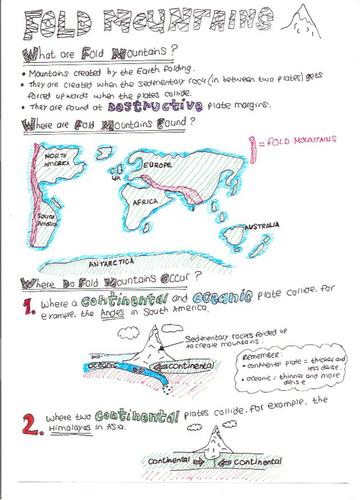 FOLD MOUNTAINS
What are Fold Mountains?
• Mountains created by the Earth folding.
• They are created when the sedimentary rock (in between two plates) gets
forced upwards when the plates collide.
• They are found at DESTRUCTIVE plate margins.
Where are Fold Mountains Found?
= FOLD MOUNTAINS
NORTH
AMERICA
EUROPE
UK
AFRICA
SOUTH
AMERICA
AUSTRALIA
ANTARCTICA
Where Do Fold Mountains Occur?
1. Where a continental and oceanic plate collide. For
example, the Andes in South America.
Sedimentary rocks folded up
to create mountains.
oceanic
continental
Remember:
• continental plate = thicker and
less dense.
• oceanic = thinner and more
dense
2. Where two continental plates collide. For example, the
Himalayas in Asia.
continental
continental